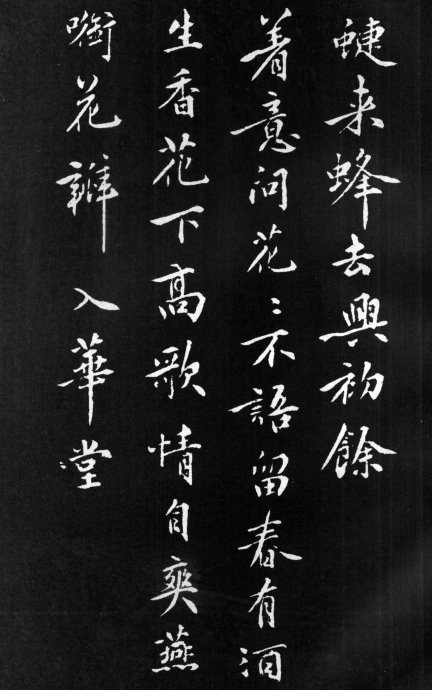 蜨来蜂去興初餘
着意问花〻不語留春有酒
生香花下高歌情自爽燕
啣花瓣入華堂